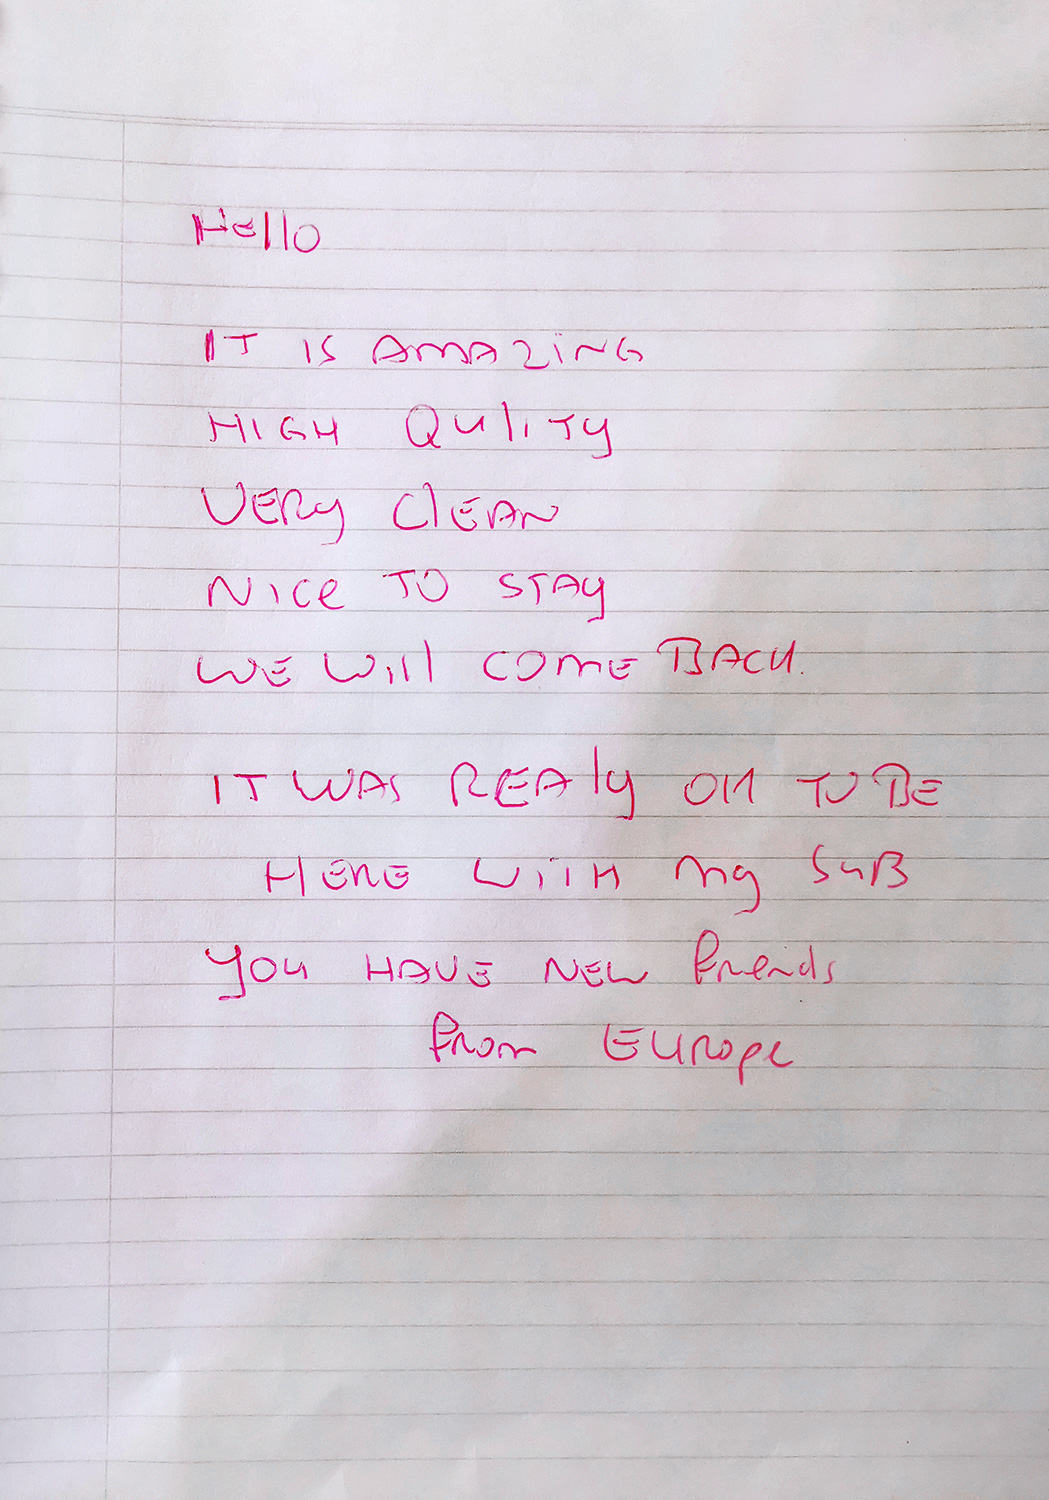 Hello
IT IS AMAZING
HIGH QULITY
VERY ClEAN
NICE TO STAY
WE Will COME BACK.
IT WAS REALY OK TO BE
HERE WITH MY SUB
YOU HAVE NEW friends
from EUROPE